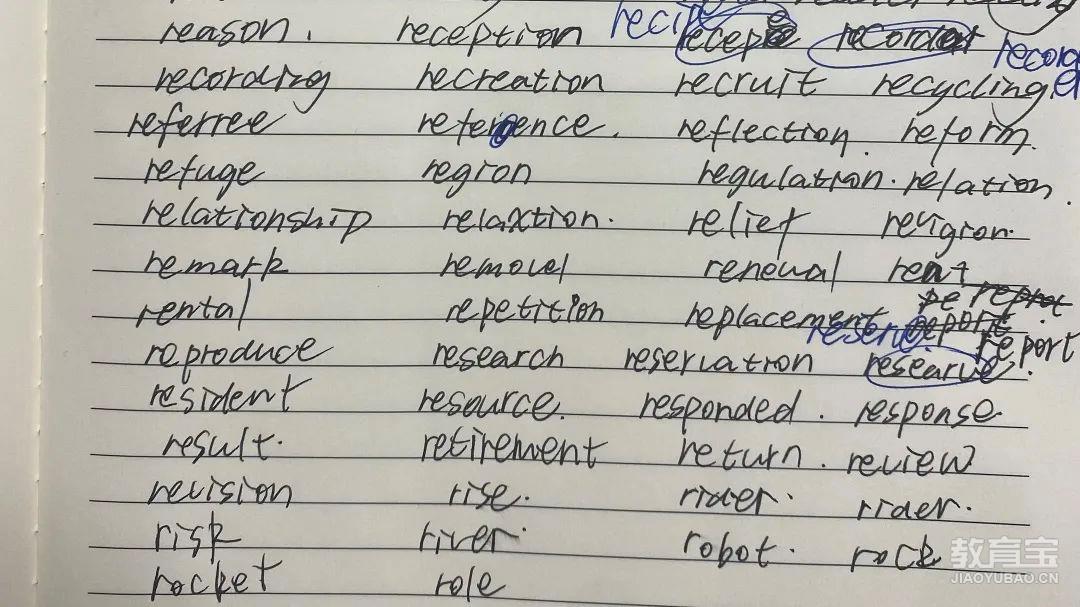 recipe
reason. reception recepe recordat recorder
recording recreation recruit recycling.
referree reference. reflection. reform.
refuge region regulation. relation.
relationship relaxtion. relief religion.
remark removel renewal rent
rental repetition replacement report
reserve report.
reproduce research reservation researve
resident resource. responded. response.
result. retirement return. review
revision rise. rider. rider.
risk river. robot. rock
rocket role
教育宝
JIAOYUBAO.CN